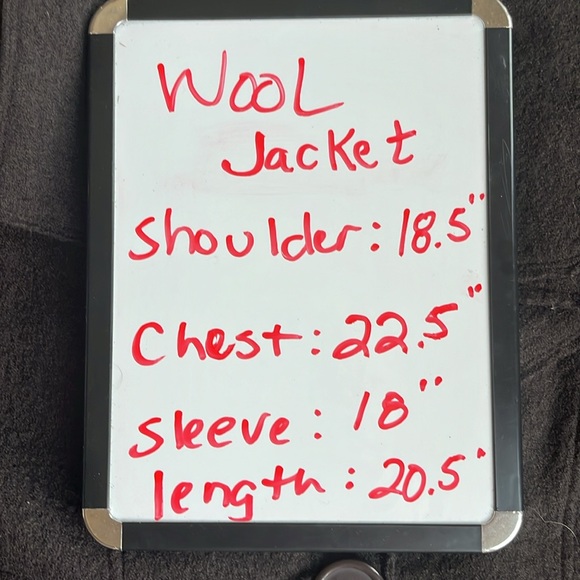 WOOL
Jacket
shoulder: 18.5"
Chest: 22.5"
sleeve: 18"
length: 20.5"